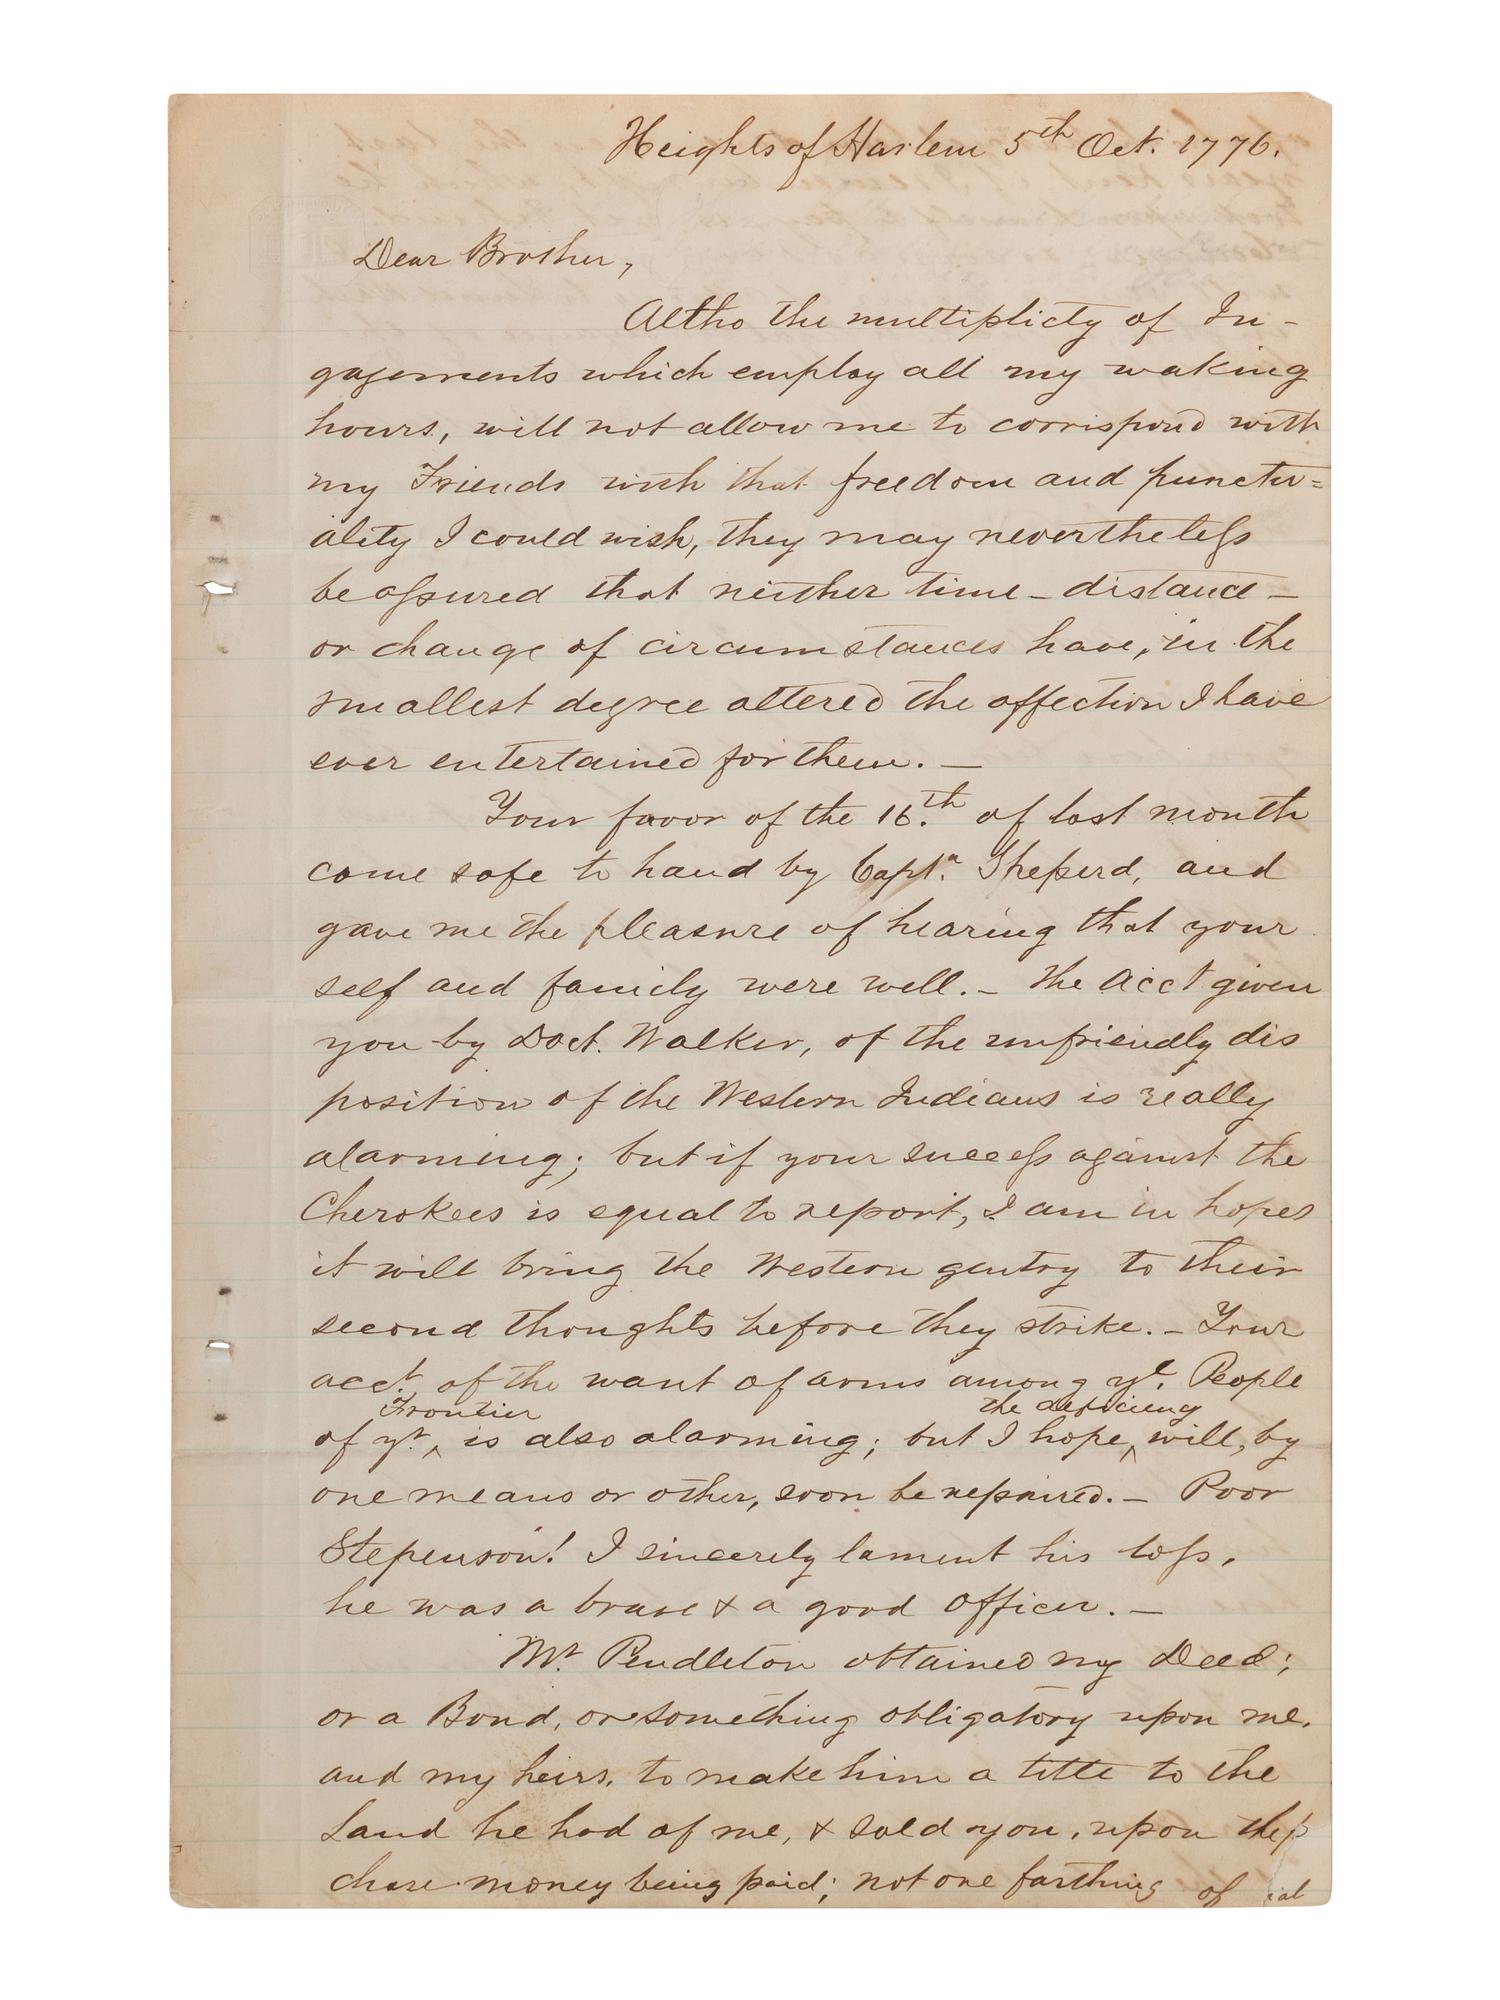 Heights of Harlem 5th Oct. 1776.
Dear Brother,
Altho the multiplicty of In-
gagements which employ all my waking
hours, will not allow me to corrispond with
my Friends with that freedom and punctu=
ality I could wish, they may nevertheless
be assured that neither time - distance -
or change of circumstances have, in the
smallest degree altered the affection I have
ever entertained for them. —
Your favor of the 16.th of last month
came safe to hand by Capt.n Sheperd, and
gave me the pleasure of hearing that your
self and family were well. - The Acct given
you by Doct. Walker, of the unfriendly dis
position of the Western Indians is really
alarming; but if your success against the
Cherokees is equal to report, I am in hopes
it will bring the Western gentry to their
second thoughts before they strike. - Your
acct. of the want of arms among ye. People
Frontier the deficiency
of yr. ^ is also alarming; but I hope, ^ will, by
one means or other, soon be repaired. - Poor
Stepenson! I sincerely lament his loss,
he was a brave & a good officer. —
Mr. Pendleton obtained my Deed;
or a Bond, or something obligatory upon me,
and my heirs, to make him a title to the
Land he had of me, & sold you, upon the p
chase money being paid; not one farthing of